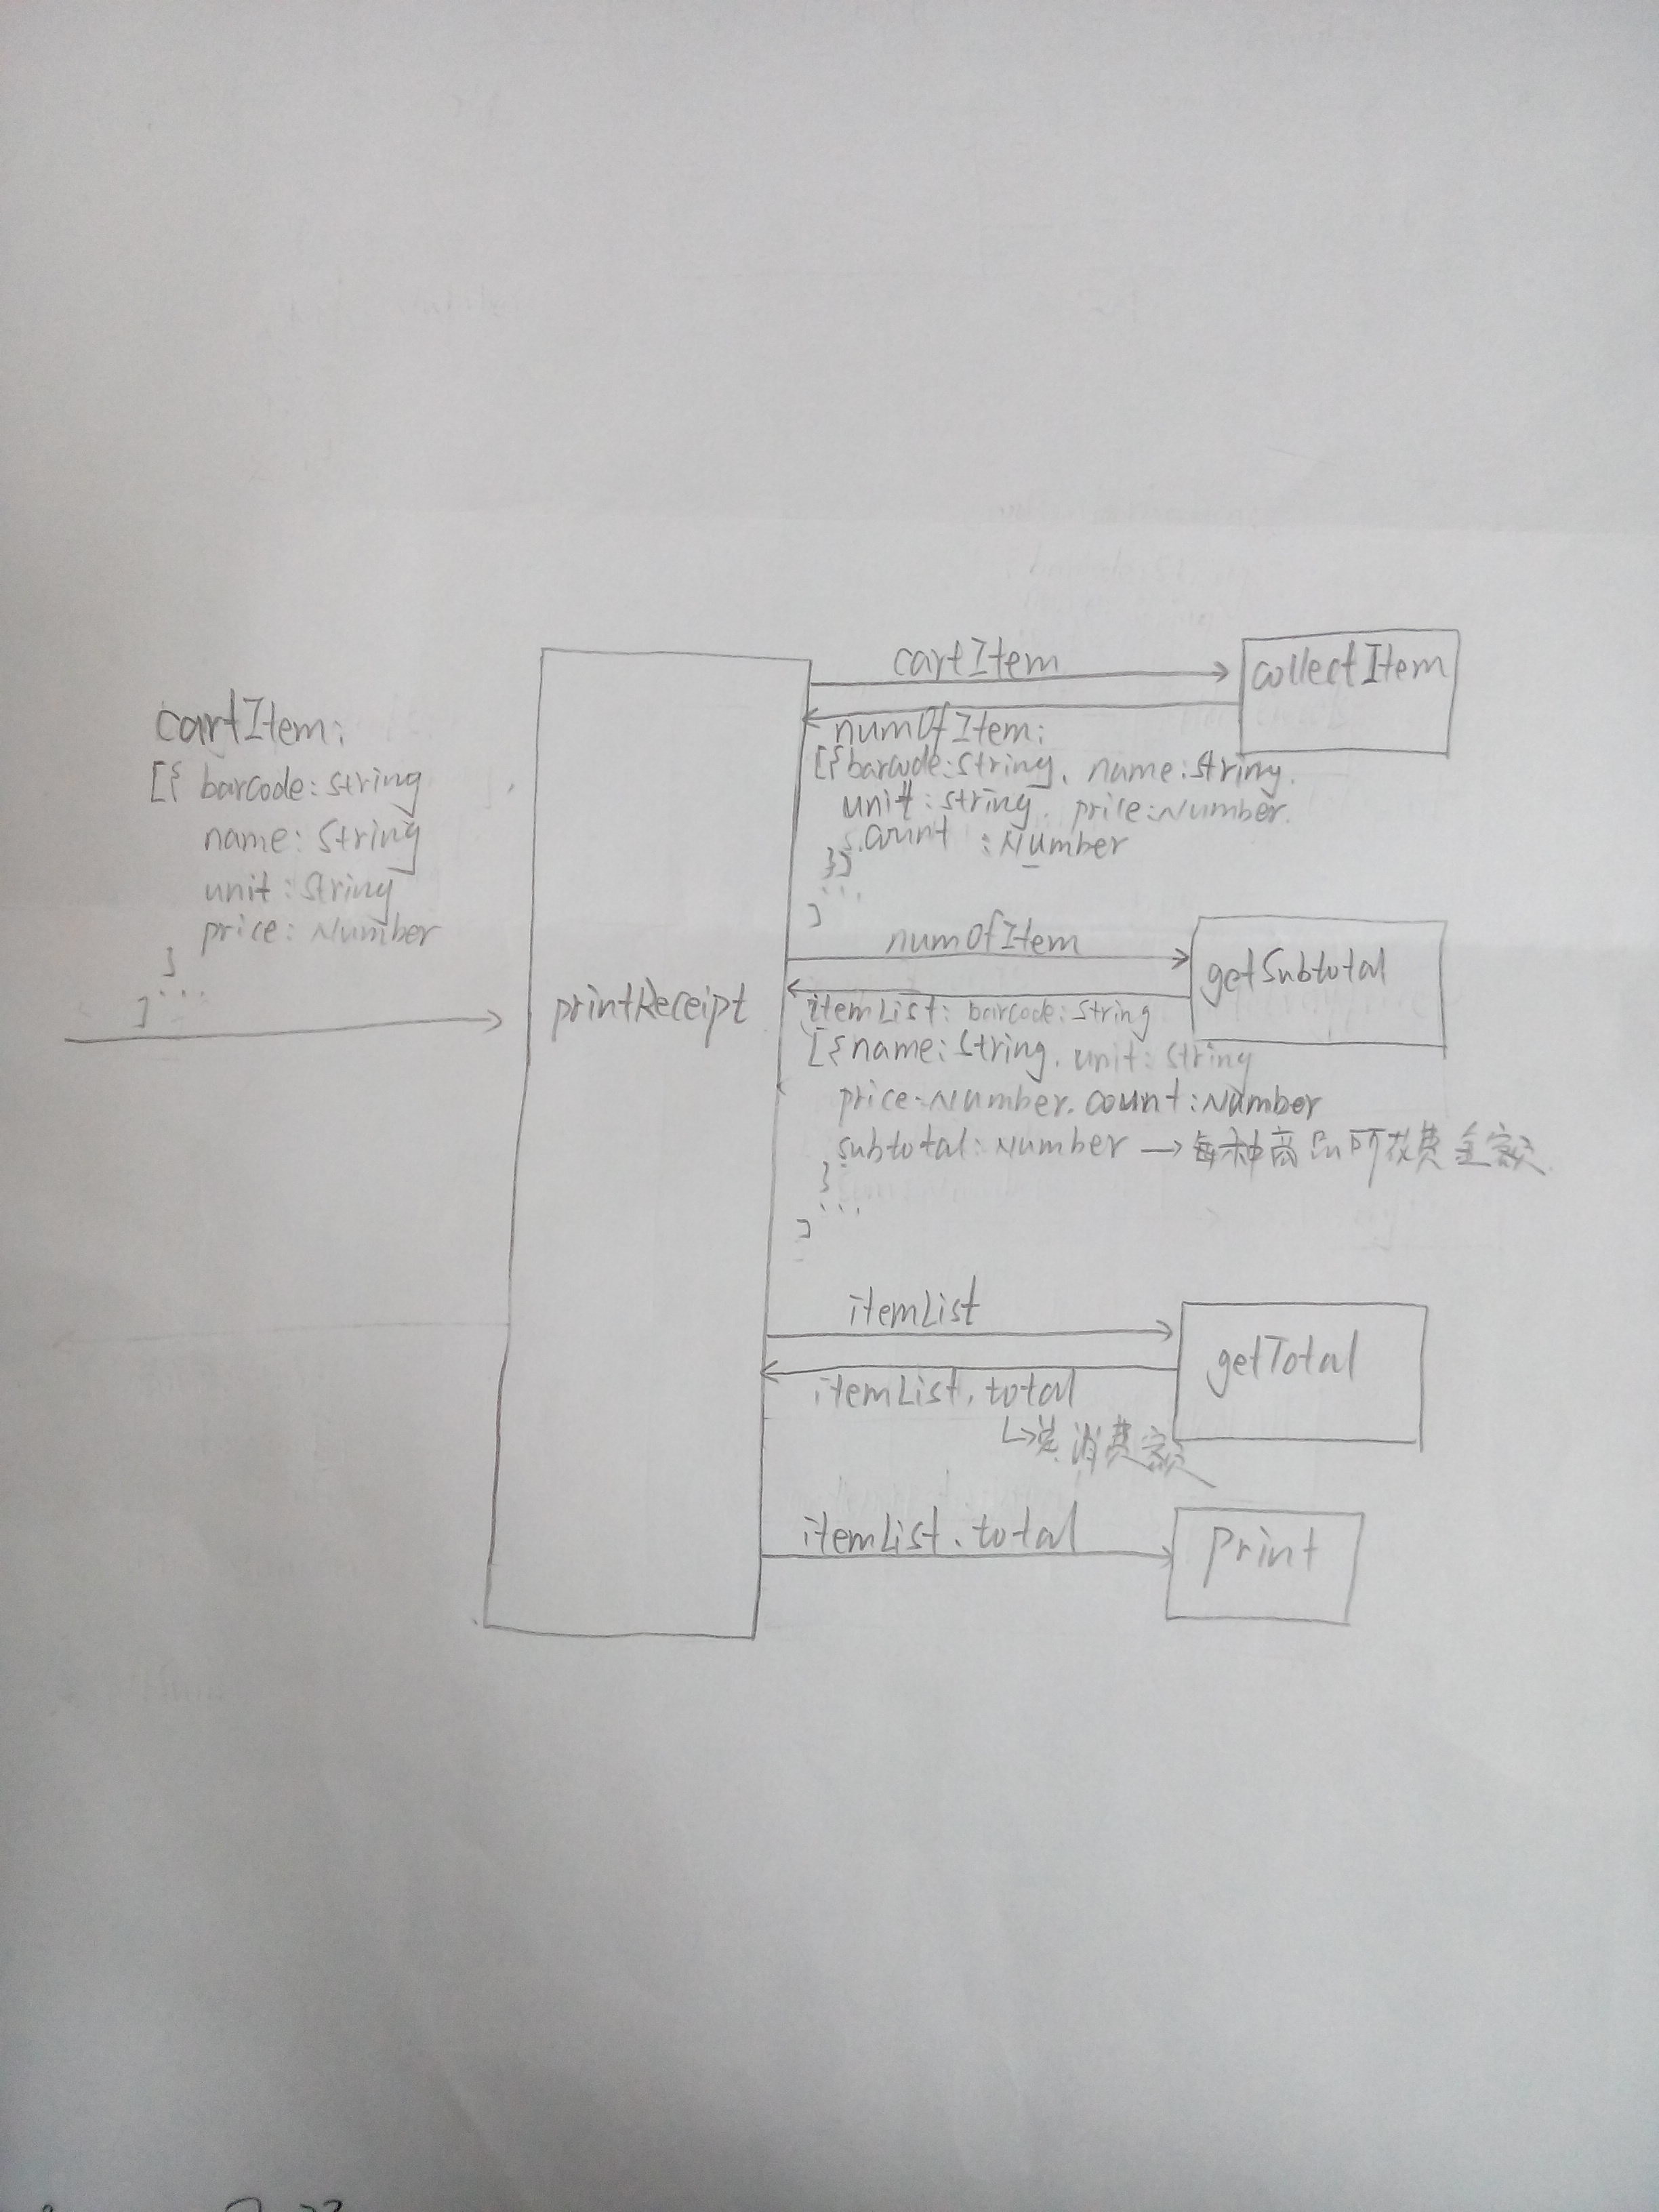 cartItem:
[{ barcode: string
name: String
unit: String
price: Number
}
...
]
printReceipt
cartItem
collectItem
numOfItem:
[{barcode: String, name: String,
unit: String, price: Number,
count : Number
}]
...
]
numOfItem
getSubtotal
itemList: barcode: String
[{name: String, unit: String
price: Number, count: Number
subtotal: Number → 每种商品所花费金额
}
...
]
itemList
getTotal
itemList, total
↳总消费额
itemList, total
print